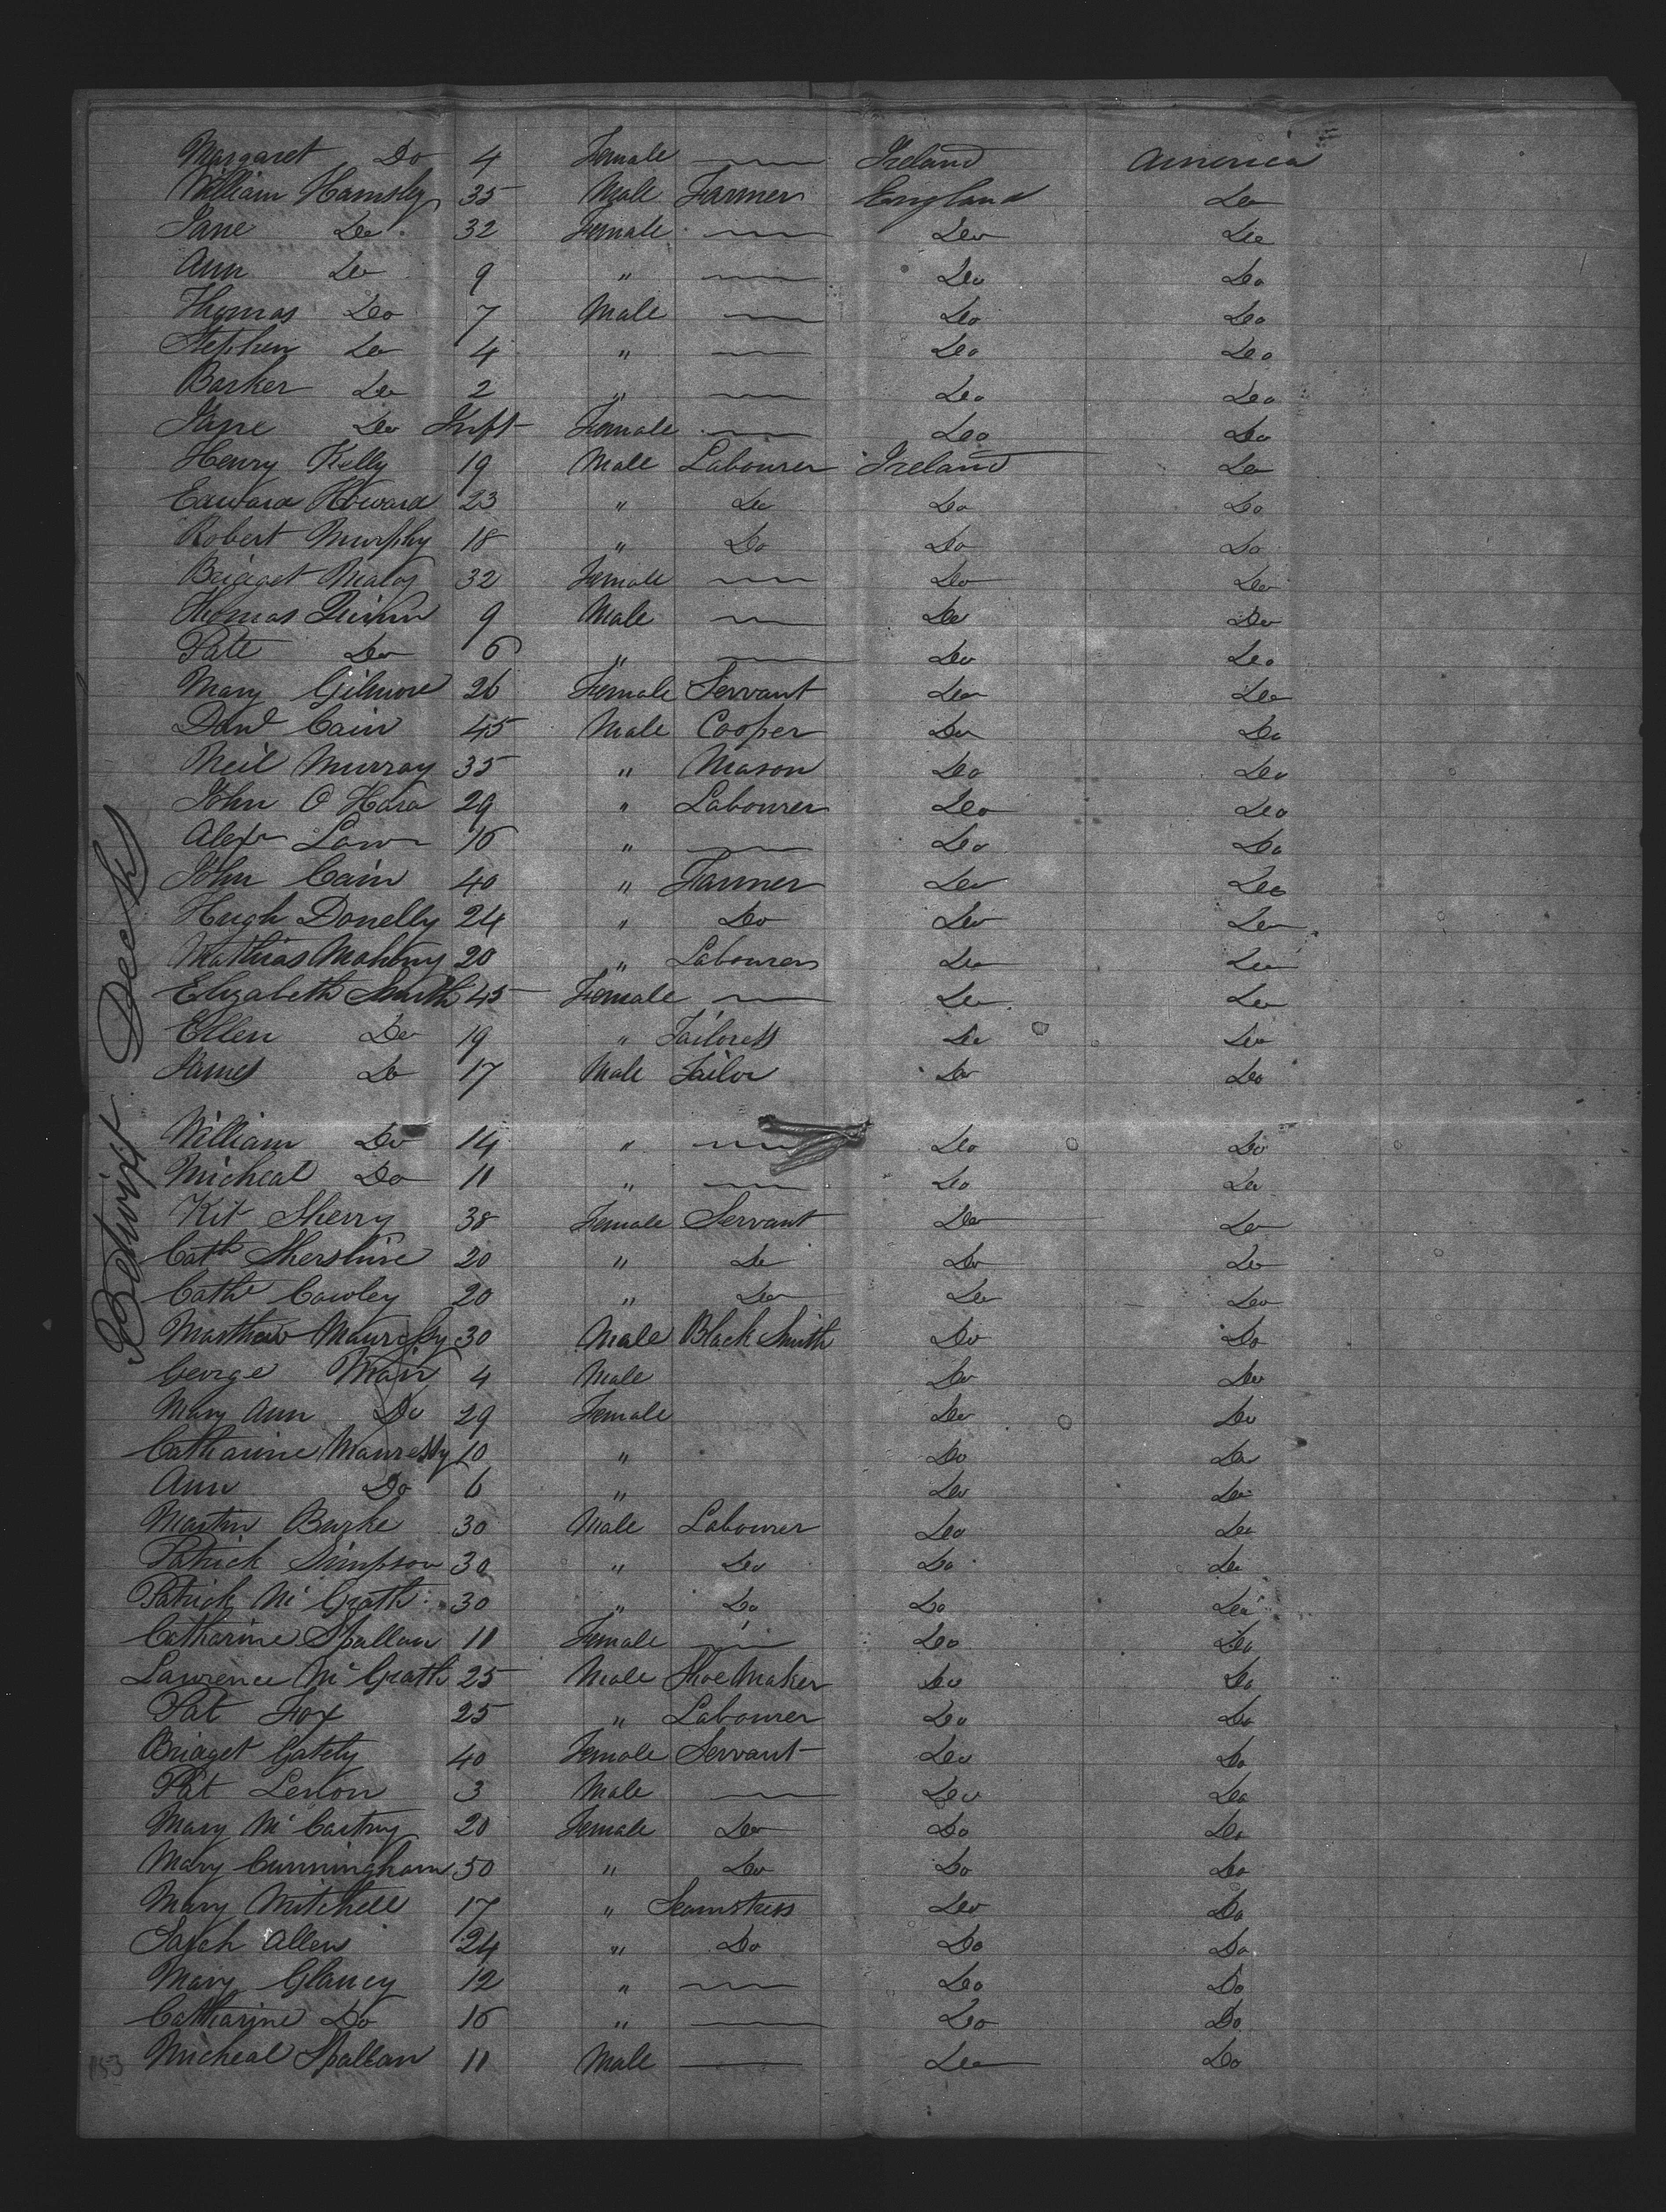 Margaret Do 4 Female Ireland America
William Hamsley 35 Male Farmer England Do
Jane Do 32 Female Do Do
Ann Do 9 " Do Do
Thomas Do 7 Male Do Do
Stephen Do 4 " Do Do
Barker Do 2 " Do Do
Jane Do Inft Female Do Do
Henry Kelly 19 Male Labourer Ireland Do
Edward Howard 23 " Do Do Do
Robert Murphy 18 " Do Do Do
Bridget 32 Female Do Do
Thomas Quinn 9 Male Do Do
Pate Do 6 " Do Do
Mary Gilmore 26 Female Servant Do Do
Danl Cain 45 Male Cooper Do Do
Neil Murray 35 " Mason Do Do
John O Hara 29 " Labourer Do Do
Alexr Law 16 " Do Do
John Cain 40 " Farmer Do Do
Hugh Donelly 24 " Do Do Do
Mathias Mahony 20 " Labourer Do Do
Elizabeth Smith 45 Female Do Do
Ellen Do 19 " Tailoress Do Do
James Do 17 Male Tailor Do Do
William Do 14 " Do Do
Micheal Do 11 " Do Do
Kit Sherry 38 Female Servant Do Do
Cath 20 " Do Do Do
Cathe Cowley 20 " Do Do Do
Matthew 30 Male Black Smith Do Do
George 4 Male Do Do
Mary Ann Do 29 Female Do Do
Catharine 10 " Do Do
Ann Do 6 " Do Do
Martin Burke 30 Male Labourer Do Do
Patrick Simpson 30 " Do Do Do
Patrick Mc Grath 30 " Do Do Do
Catharine Spallan 11 Female Do Do
Lawrence Mc Grath 25 Male Shoe Maker Do Do
Pat Fox 25 " Labourer Do Do
Bridget Gately 40 Female Servant Do Do
Pat Lenon 3 Male Do Do
Mary Mc Cartny 20 Female Do Do Do
Mary Cunningham 50 " Do Do Do
Mary Mitchell 17 " Seamstress Do Do
Sarah Allen 24 " Do Do Do
Mary Glancy 12 " Do Do
Catharine Do 16 " Do Do
Micheal Spallan 11 Male Do Do
Betwixt Decks